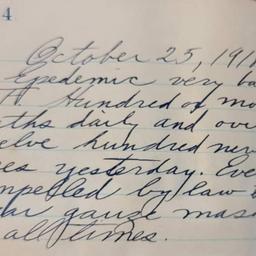 4
October 25, 191
Epedemic very ba
A Hundred or mo
ths daily and ove
elve hundred new
es yesterday. Eve
mpelled by law t
ar gauze mas
all times.